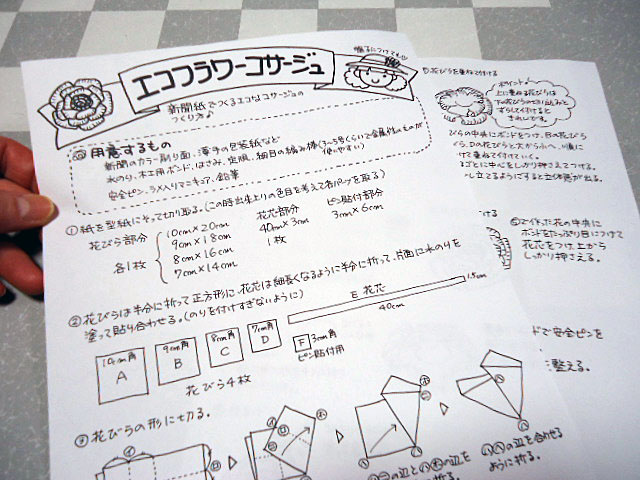 エコフラワーコサージュ
帽子につけても
新聞紙でつくるエコなコサージュの
つくり方♪
用意するもの
新聞のカラー刷り面、薄手の包装紙など
水のり、木工用ボンド、はさみ、定規、細目の編み棒(3~5号くらいで金属性のものが
使いやすい)
安全ピン、ラメ入りマニキュア、鉛筆
①紙を型紙にそって切り取る。(この時出来上りの色目を考えて各パーツを取る)
花びら部分
各1枚
10cm×20cm
9cm×18cm
8cm×16cm
7cm×14cm
花芯部分
40cm×3cm
1枚
ピン貼付部分
3cm×6cm
②花びらは半分に折って正方形に、花芯は細長くなるように半分に折って、片面に水のりを
塗って貼り合わせる。(のりを付けすぎないように)
10cm角
A
9cm角
B
8cm角
C
7cm角
D
E 花芯
40cm
1.5cm
F
3cm角
ピン貼付用
花びら4枚
③花びらの形に切る。
の辺を
ように折る。
の辺を合わせる
ように折る。
花びらを重ねて付ける
ポイント♪
上に重ねる花びらは
下の花びらの切り込みと
ずらして付けると
きれいです。
びらの中央にボンドをつけ、Bの花びら
、Dの花びらと大から小へ、順に
けて重ねて付けていく。
るごとに中心をしっかり押さえてつける。
し立てるようにすると立体感が出る。
つける
⑥で作った花の中央に
ボンドをたっぷり目につけて
花芯をつけ、上から
しっかり押さえる。
ドで安全ピンを
整える。